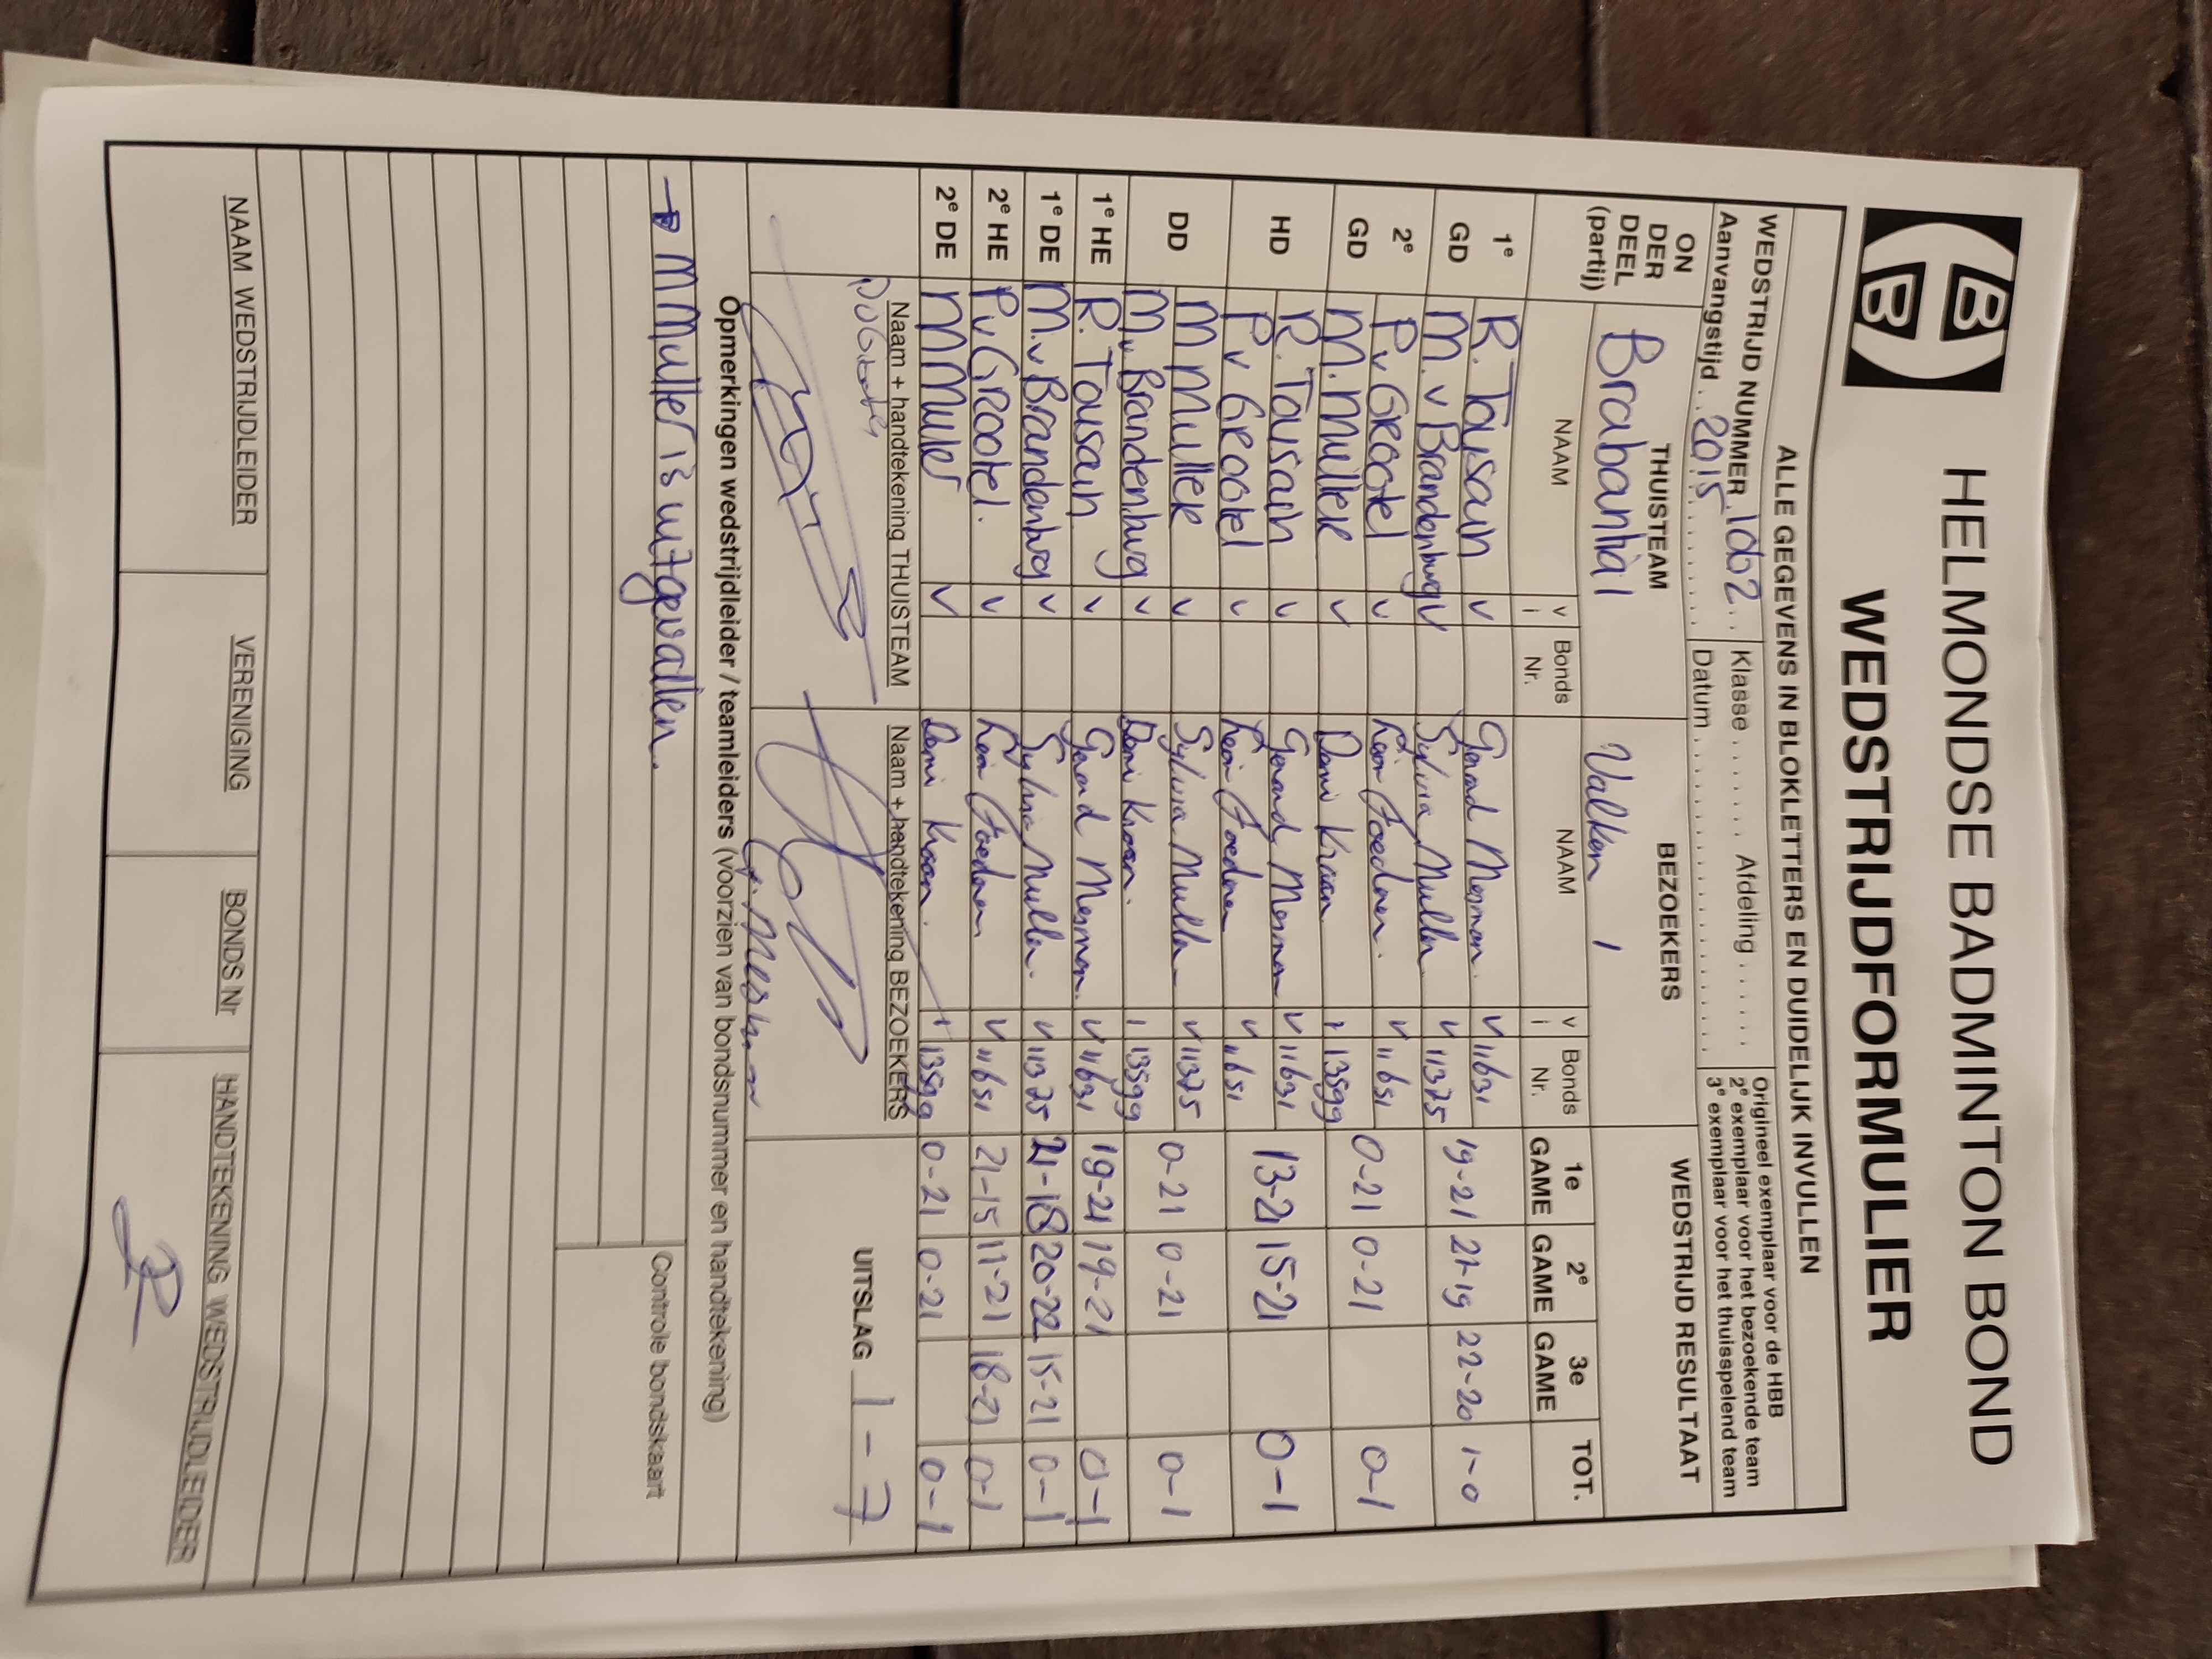 HBB
HELMONDSE BADMINTON BOND
WEDSTRIJDFORMULIER
ALLE GEGEVENS IN BLOKLETTERS EN DUIDELIJK INVULLEN
WEDSTRIJD NUMMER 1062 Klasse ...... Afdeling ......
Aanvangstijd 2015 Datum ......
Origineel exemplaar voor de HBB
2e exemplaar voor het bezoekende team
3e exemplaar voor het thuisspelend team
ON DER DEEL (partij) THUISTEAM BEZOEKERS WEDSTRIJD RESULTAAT
Brabantia 1 Valken 1
NAAM v i Bonds Nr. NAAM v i Bonds Nr. 1e GAME 2e GAME 3e GAME TOT.
1e GD R. Tousain v Gerard Mesman v 11631 19-21 21-19 22-20 1-0
M. v Brandenburg v Sylvia Muller v 11375
2e GD P v Grootel v Leon v 11651 0-21 0-21 0-1
M. Muller v Dani Kraan i 13599
HD R. Tousain v Gerard Mesman v 11631 13-21 15-21 0-1
P v Grootel v Leon v 11651
DD M Muller v Sylvia Muller v 11375 0-21 0-21 0-1
M v Brandenburg v Dani Kraan i 13599
1e HE R. Tousain v Gerard Mesman v 11631 19-21 19-21 0-1
1e DE M. v Brandenburg v Sylvia Muller v 11375 21-18 20-22 15-21 0-1
2e HE P v Grootel v Leon v 11651 21-15 11-21 18-21 0-1
2e DE M Muller v Dani Kraan i 13599 0-21 0-21 0-1
Naam + handtekening THUISTEAM Naam + handtekening BEZOEKERS UITSLAG 1-7
G. Mesman
Opmerkingen wedstrijdleider / teamleiders (voorzien van bondsnummer en handtekening)
→ M Muller is uitgevallen.
Controle bondskaart
NAAM WEDSTRIJDLEIDER VERENIGING BONDS Nr HANDTEKENING WEDSTRIJDLEIDER